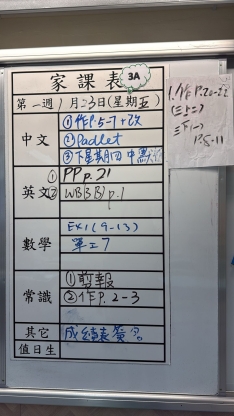 家課表 3A
第一週 1月23日(星期五)
中文
①作P.5-7+改
②Padlet
③下星期四中默
英文
① PP p.21
② WB(3B)p.1
數學
EX1(9-13)
單工7
常識
①剪報
②作P.2-3
其它
成績表簽名
值日生
1.作P.20-22
(三上二)
三下(一)
P.8-11